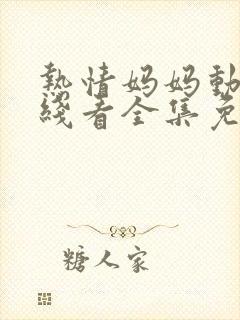 熱情妈妈動
綫看全集免
糖人家